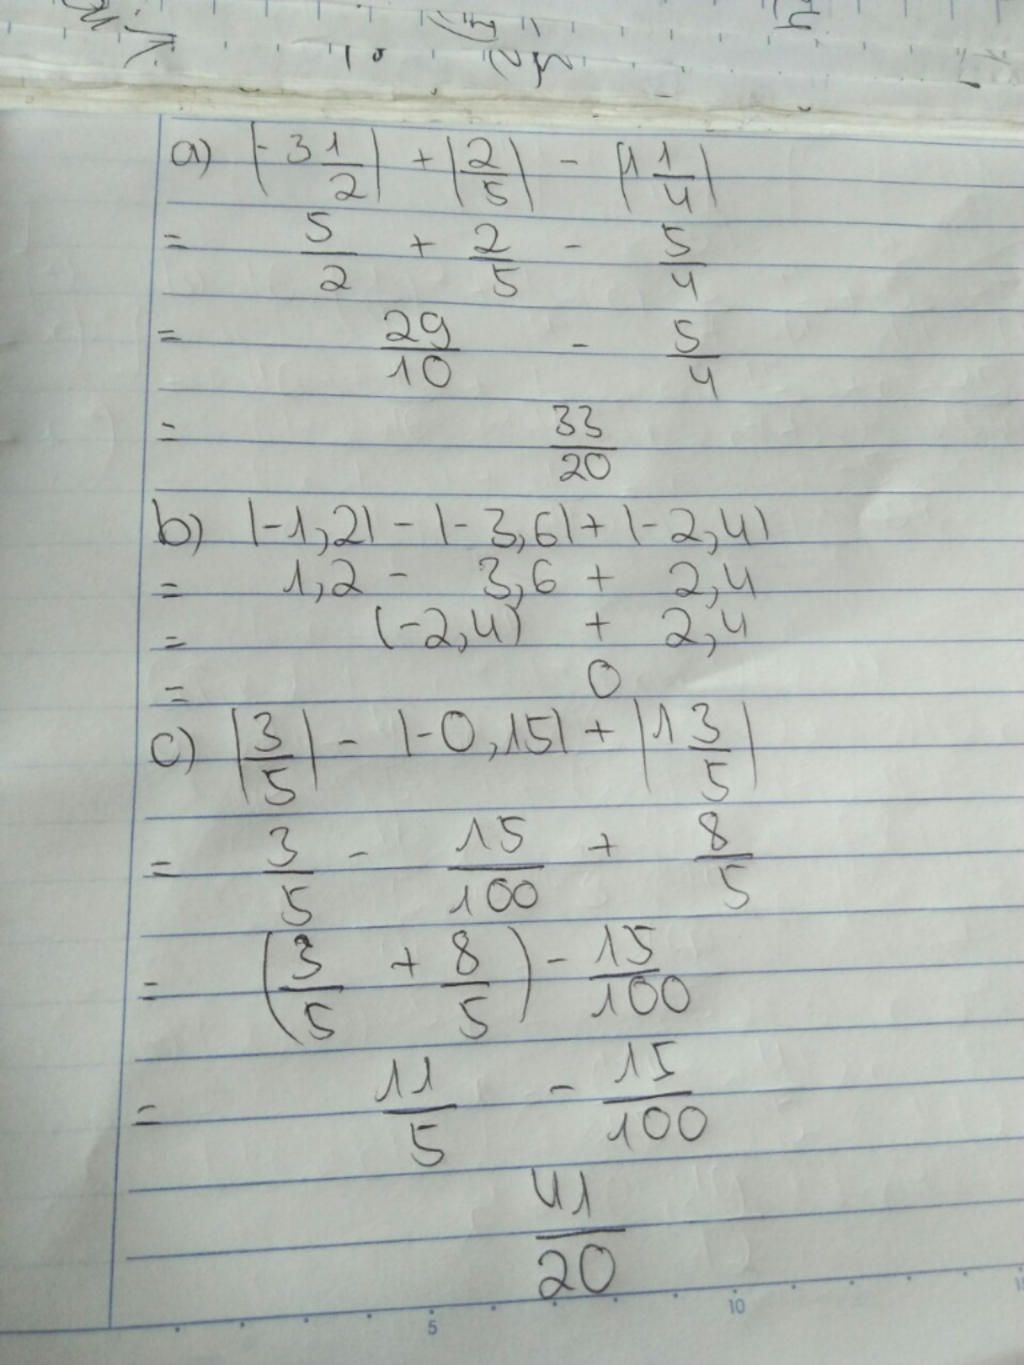 a) |-3 1/2| + |2/5| - |1 1/4|
= 5/2 + 2/5 - 5/4
= 29/10 - 5/4
= 33/20
b) |-1,2| - |-3,6| + |-2,4|
= 1,2 - 3,6 + 2,4
= (-2,4) + 2,4
= 0
c) |3/5| - |-0,15| + |1 3/5|
= 3/5 - 15/100 + 8/5
= (3/5 + 8/5) - 15/100
= 11/5 - 15/100
41/20
5 10